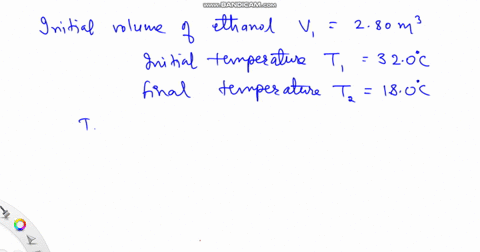 www.BANDICAM.com
Initial volume of ethanol V₁ = 2.80 m³
Initial temperature T₁ = 32.0°C
final temperature T₂ = 18.0°C
T.